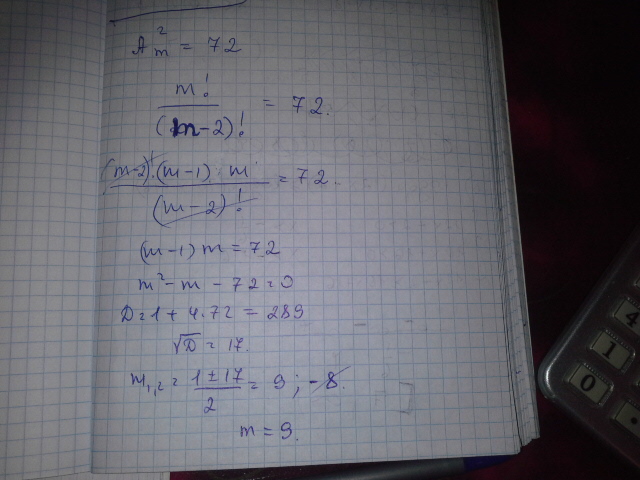 A²ₘ = 72
m! / (m-2)! = 72.
(m-2)!·(m-1)·m / (m-2)! = 72.
(m-1) m = 72
m² - m - 72 = 0
D = 1 + 4·72 = 289
√D = 17.
m₁,₂ = (1 ± 17) / 2 = 9 ; -8.
m = 9.
4
1
0